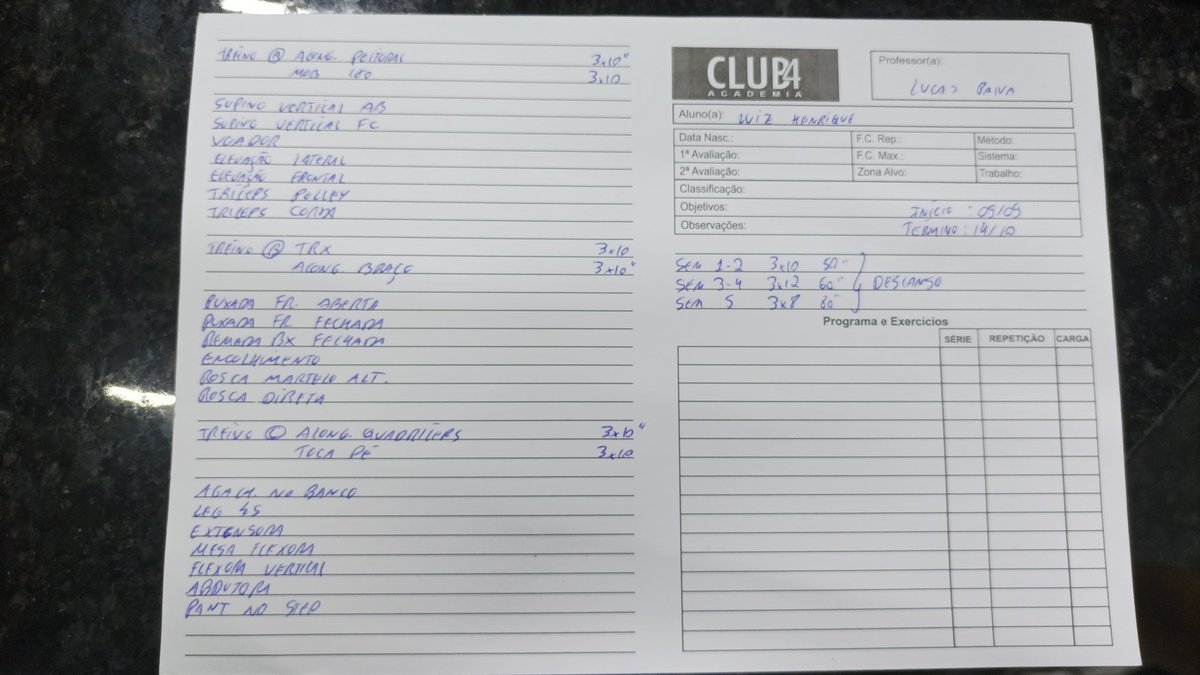 TREINO A ALONG. PEITORAL 3x10"
MOB LEO 3x10
SUPINO VERTICAL AB
SUPINO VERTICAL FC
VOADOR
ELEVAÇÃO LATERAL
ELEVAÇÃO FRONTAL
TRICEPS POLLEY
TRICEPS CORDA
TREINO B TRX 3x10
ALONG. BRAÇO 3x10"
PUXADA FR. ABERTA
PUXADA FR FECHADA
REMADA BX FECHADA
ENCOLHIMENTO
ROSCA MARTELO ALT.
ROSCA DIRETA
TREINO C ALONG. QUADRICEPS 3x10"
TOCA PÉ 3x10
AGACH. NO BANCO
LEG 45
EXTENSORA
MESA FLEXORA
FLEXORA VERTICAL
ABDUTORA
PANT NO STEP
CLUB4
ACADEMIA
Professor(a):
LUCAS PAIVA
Aluno(a): LUIZ HENRIQUE
Data Nasc.: F.C. Rep.: Método:
1ª Avaliação: F.C. Max.: Sistema:
2ª Avaliação: Zona Alvo: Trabalho:
Classificação:
Objetivos: INÍCIO : 09/09
Observações: TÉRMINO : 14/10
SEM 1-2 3x10 50"
SEM 3-4 3x12 60" DESCANSO
SEM 5 3x8 80"
Programa e Exercicios
SÉRIE REPETIÇÃO CARGA